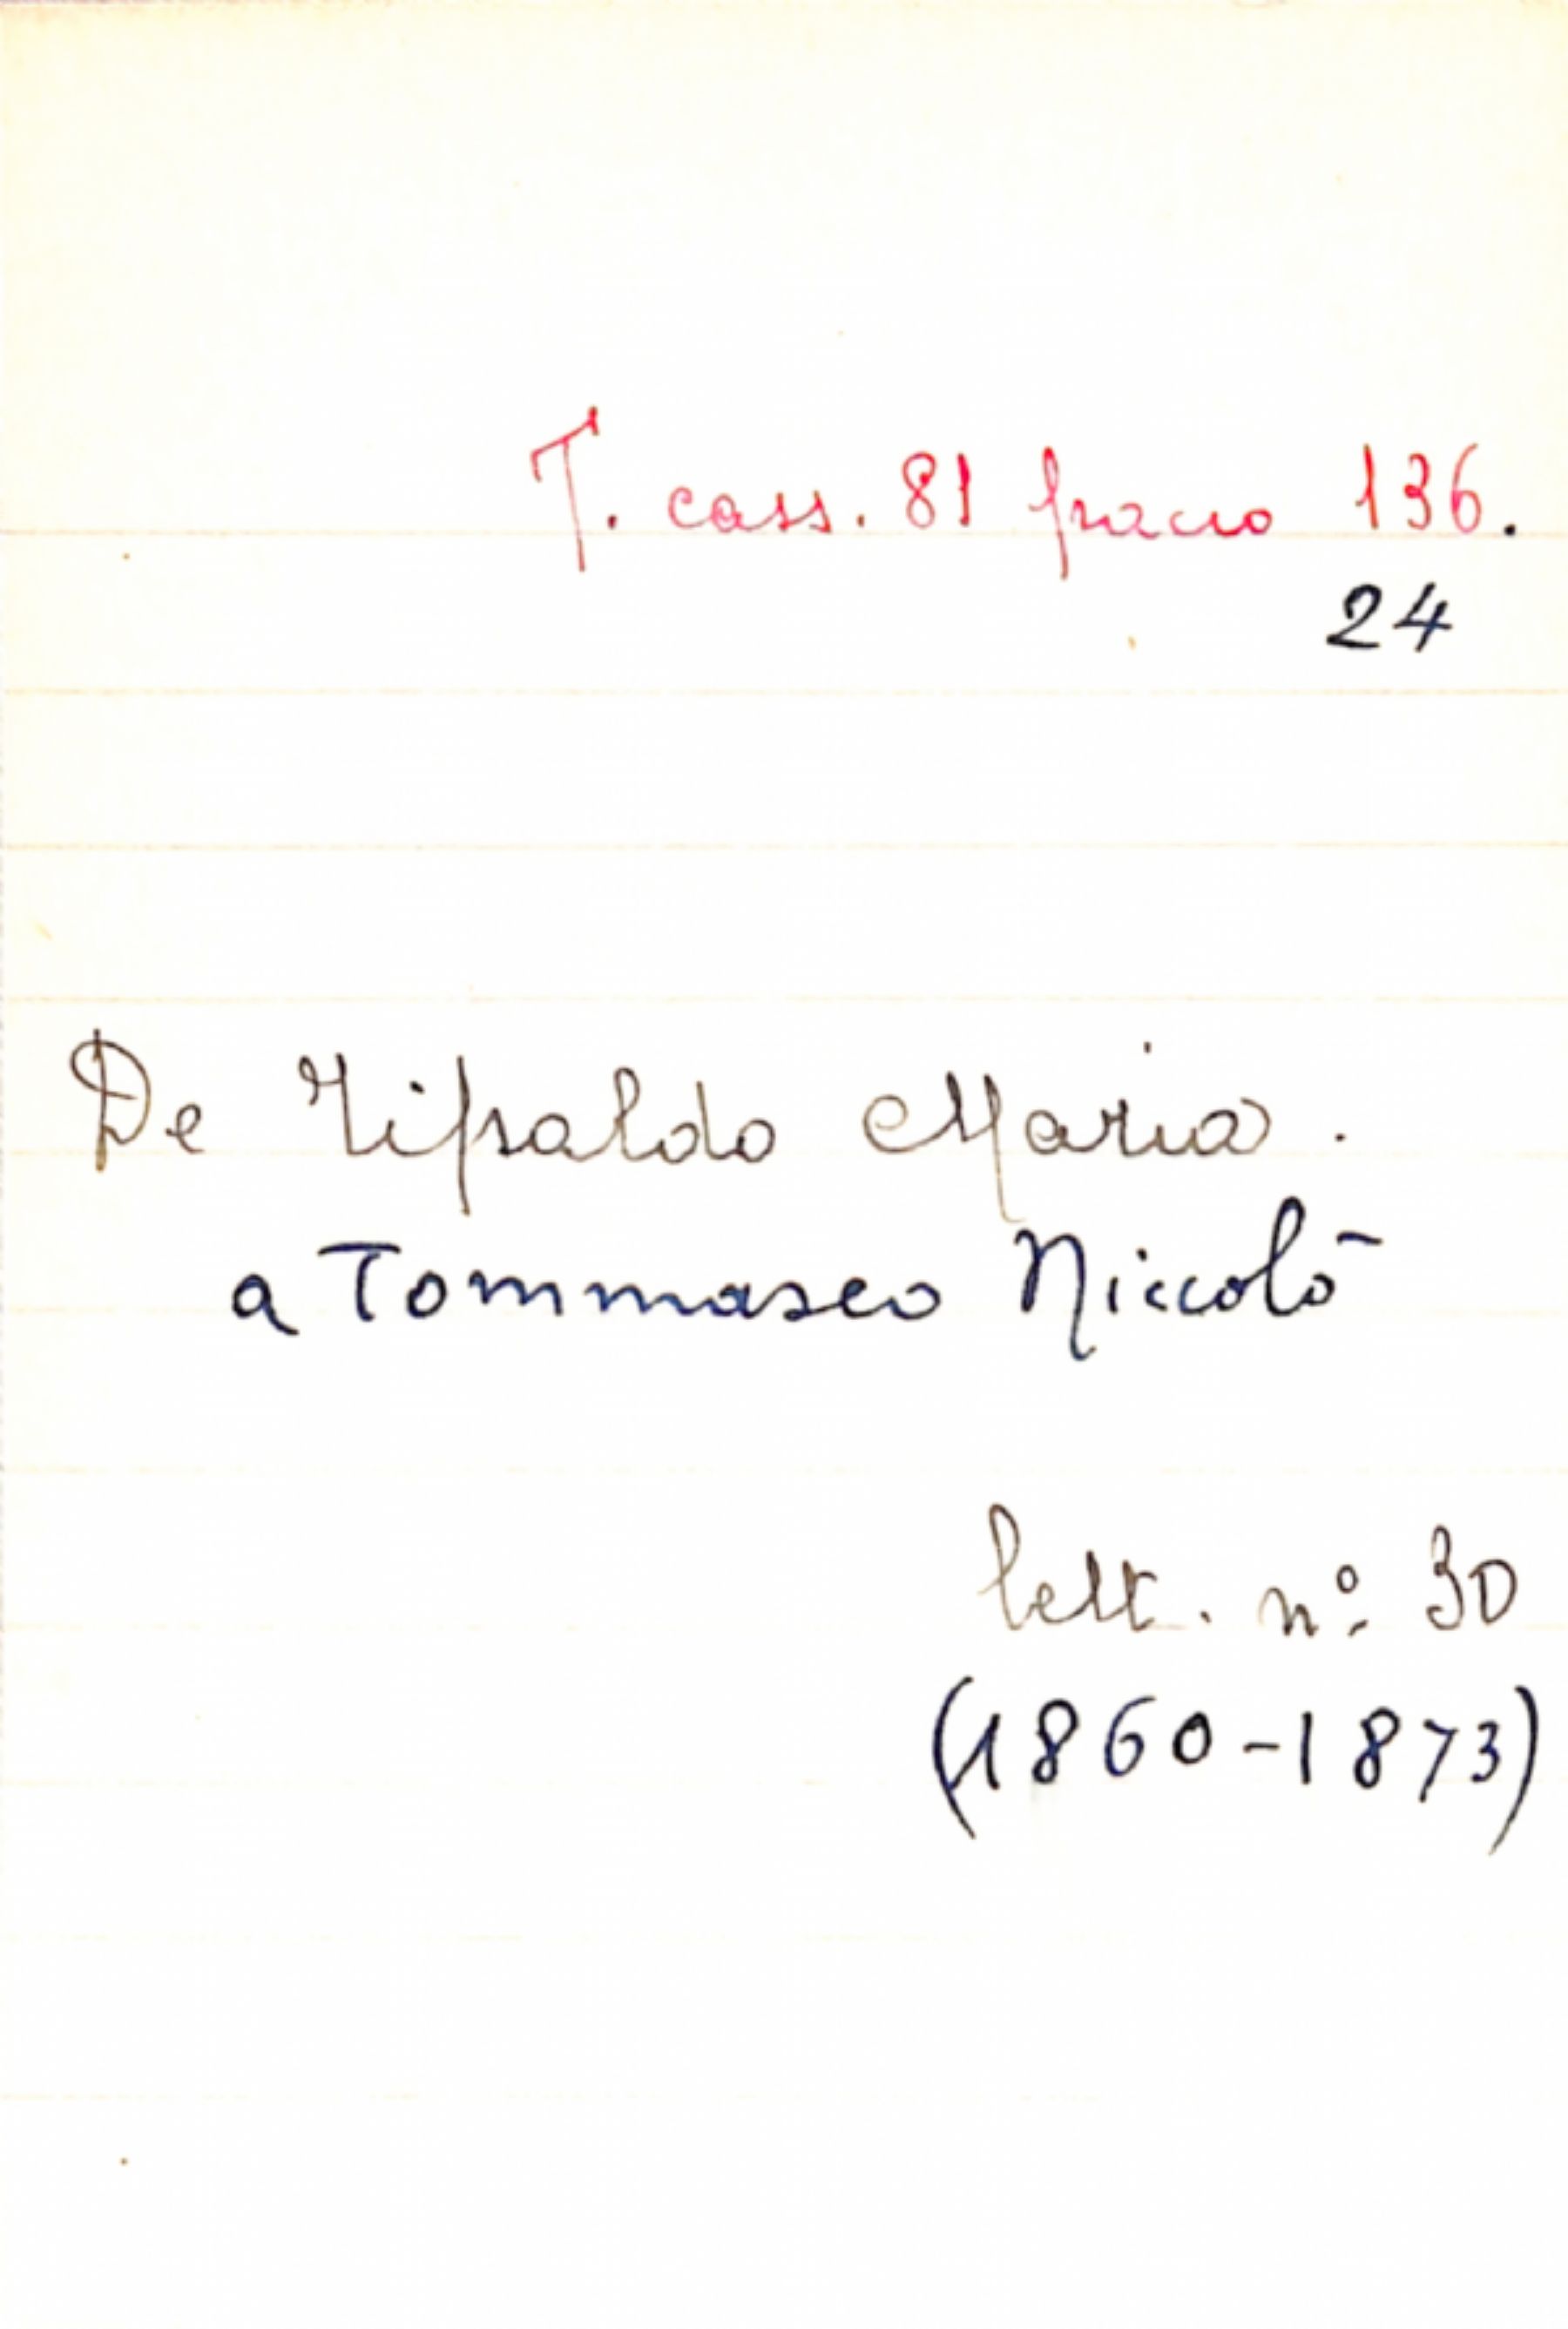 T. cass. 81 pacco 136.
24
De Tipaldo Maria.
a Tommaseo Niccolò
lett. nº 30
(1860-1873)